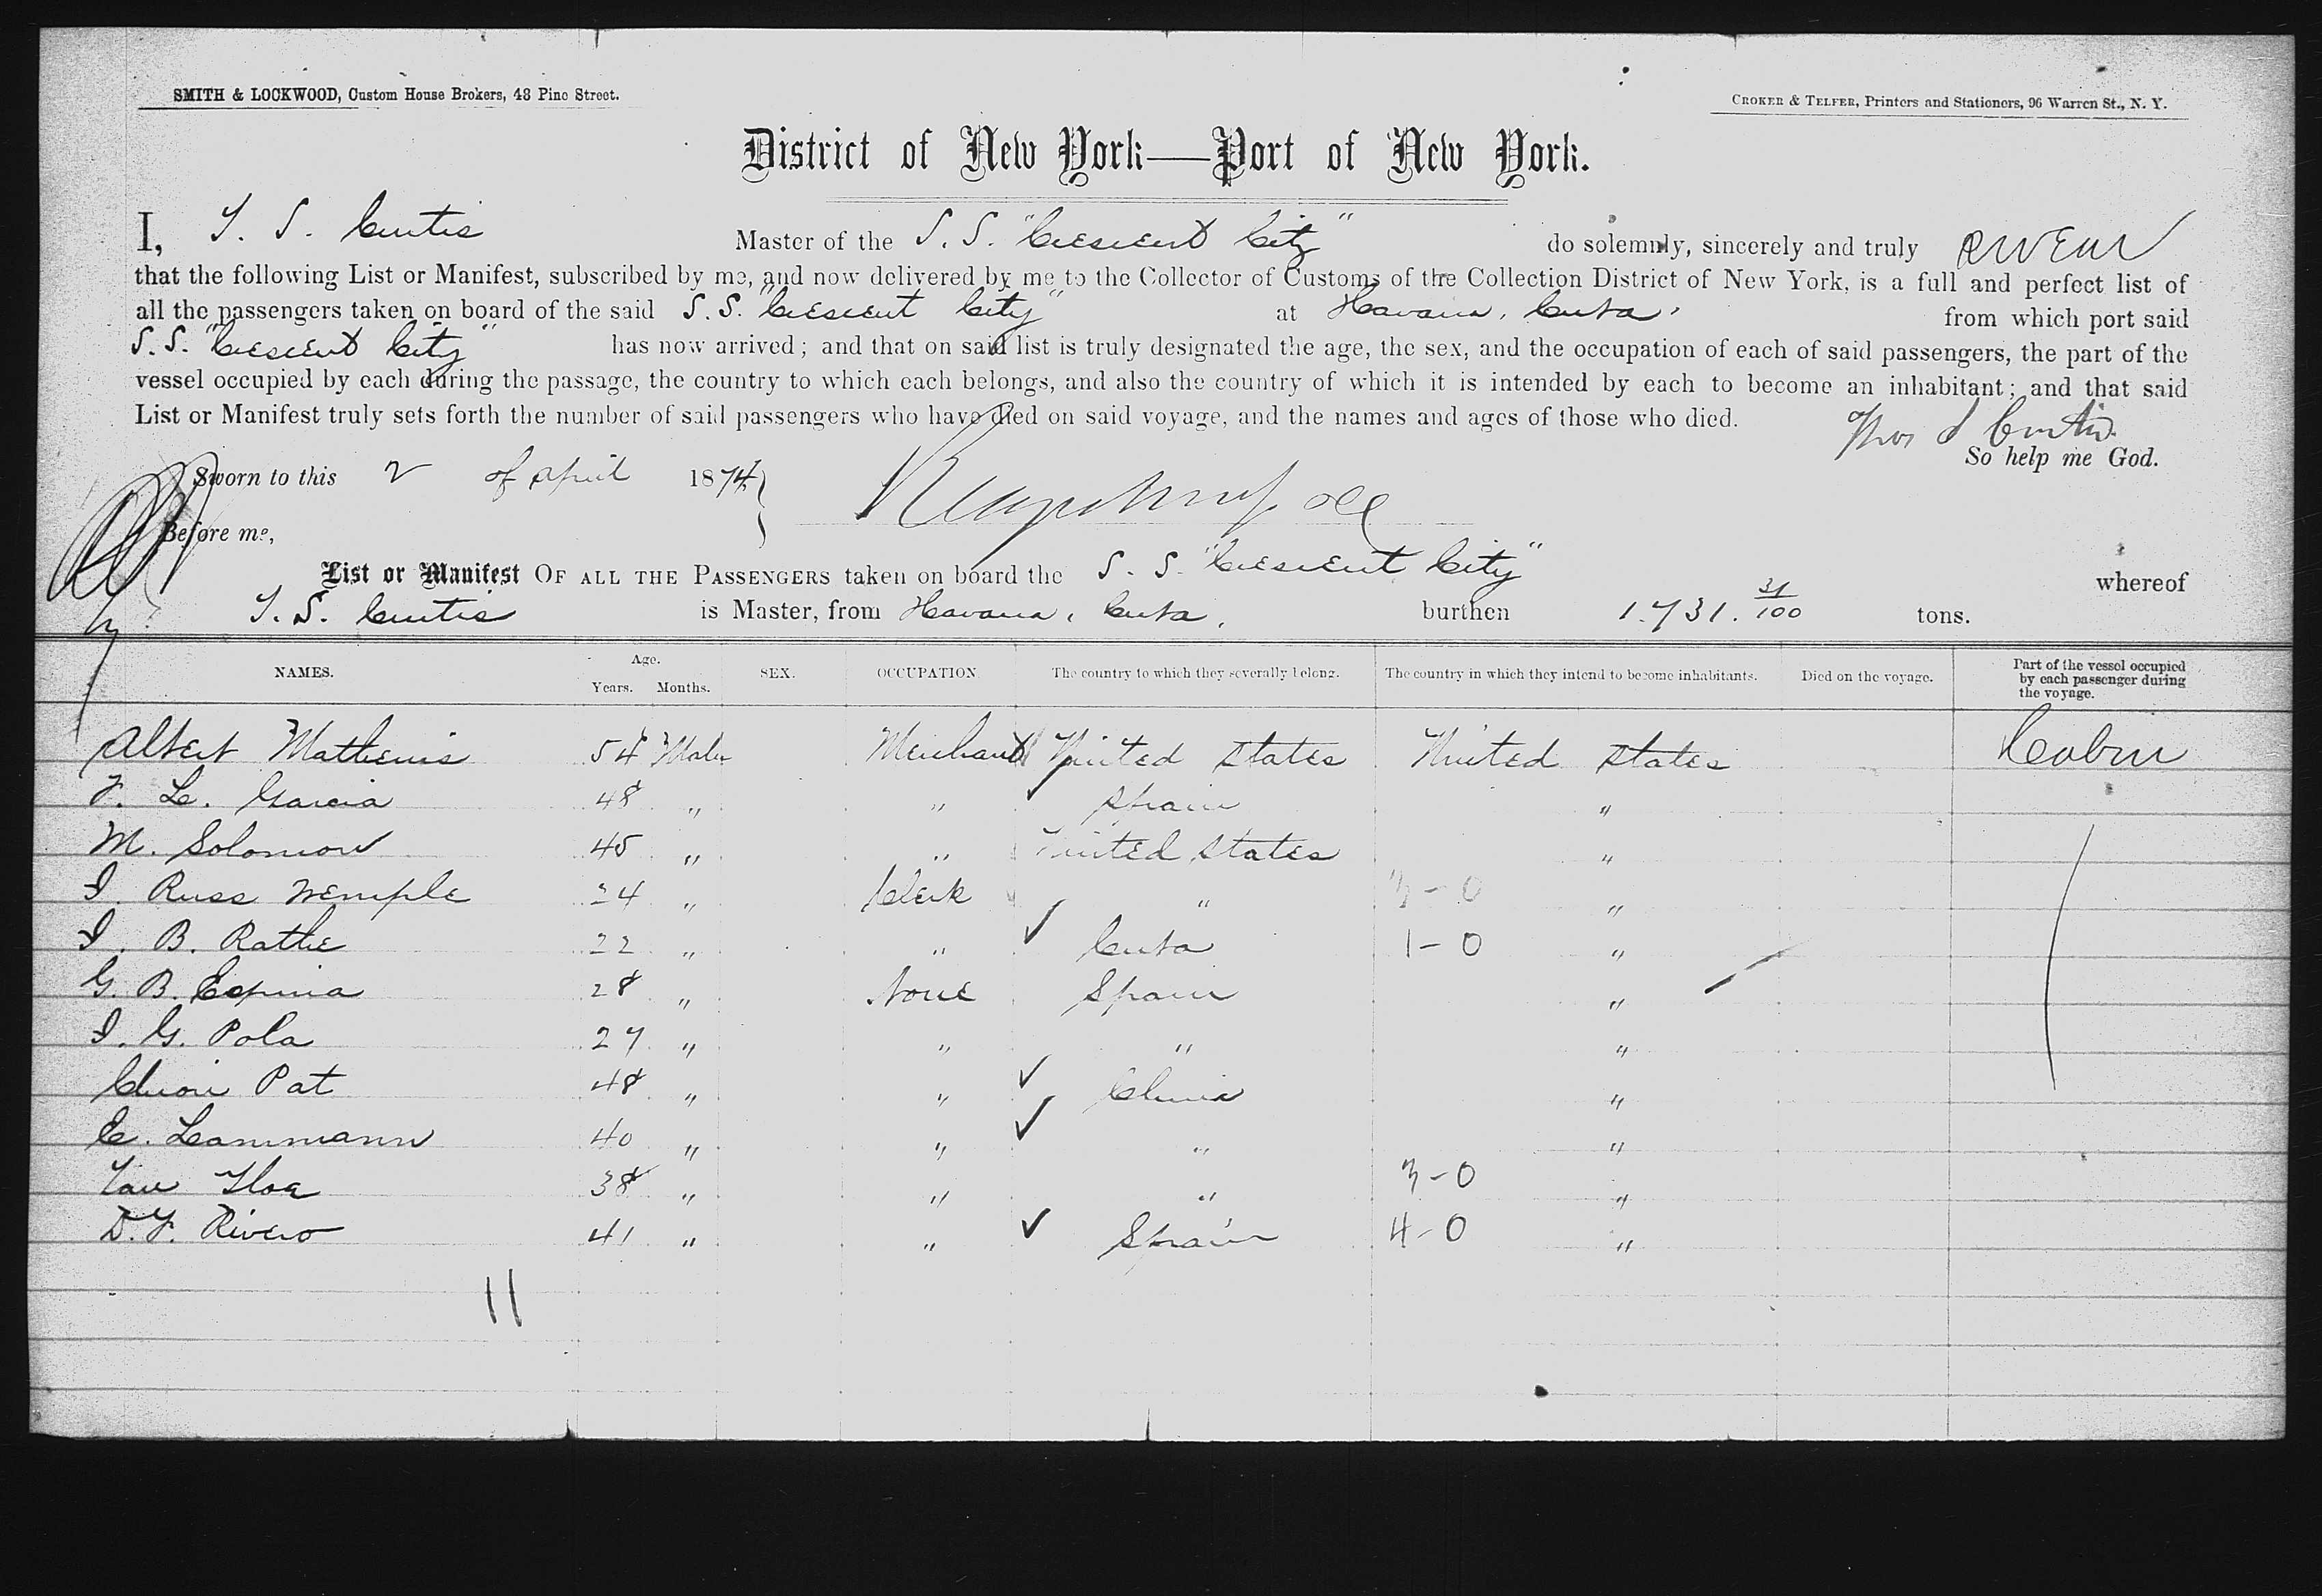 SMITH & LOCKWOOD, Custom House Brokers, 48 Pine Street.
CROKER & TELFER, Printers and Stationers, 96 Warren St., N. Y.
District of New York—Port of New York.
I, T. S. Curtis Master of the S. S. "Crescent City" do solemnly, sincerely and truly swear
that the following List or Manifest, subscribed by me, and now delivered by me to the Collector of Customs of the Collection District of New York, is a full and perfect list of
all the passengers taken on board of the said S. S. "Crescent City" at Havana, Cuba, from which port said
S. S. "Crescent City" has now arrived; and that on said list is truly designated the age, the sex, and the occupation of each of said passengers, the part of the
vessel occupied by each during the passage, the country to which each belongs, and also the country of which it is intended by each to become an inhabitant; and that said
List or Manifest truly sets forth the number of said passengers who have died on said voyage, and the names and ages of those who died.
Thos S Curtis
So help me God.
Sworn to this 2 of April 1874
Before me,
List or Manifest OF ALL THE PASSENGERS taken on board the S. S. "Crescent City" whereof
T. S. Curtis is Master, from Havana, Cuba, burthen 1.731. 31/100 tons.
NAMES. Age. Years. Months. SEX. OCCUPATION The country to which they severally belong. The country in which they intend to become inhabitants. Died on the voyage. Part of the vessel occupied by each passenger during the voyage.
Albert 54 Male Merchant United States United States Cabin
F. L. Garcia 48 " " Spain "
M. Solomon 45 " " United States "
I. Russ Wemple 24 " Clerk " "
I. B. Rathe 22 " " Cuba 1-0 "
G. B. Espina 28 " None Spain "
I. G. Pola 27 " " " "
Pat 48 " " China "
C. Lammann 40 " " " "
38 " " " 3-0 "
D. F. Rivero 41 " " Spain 4-0 "
11